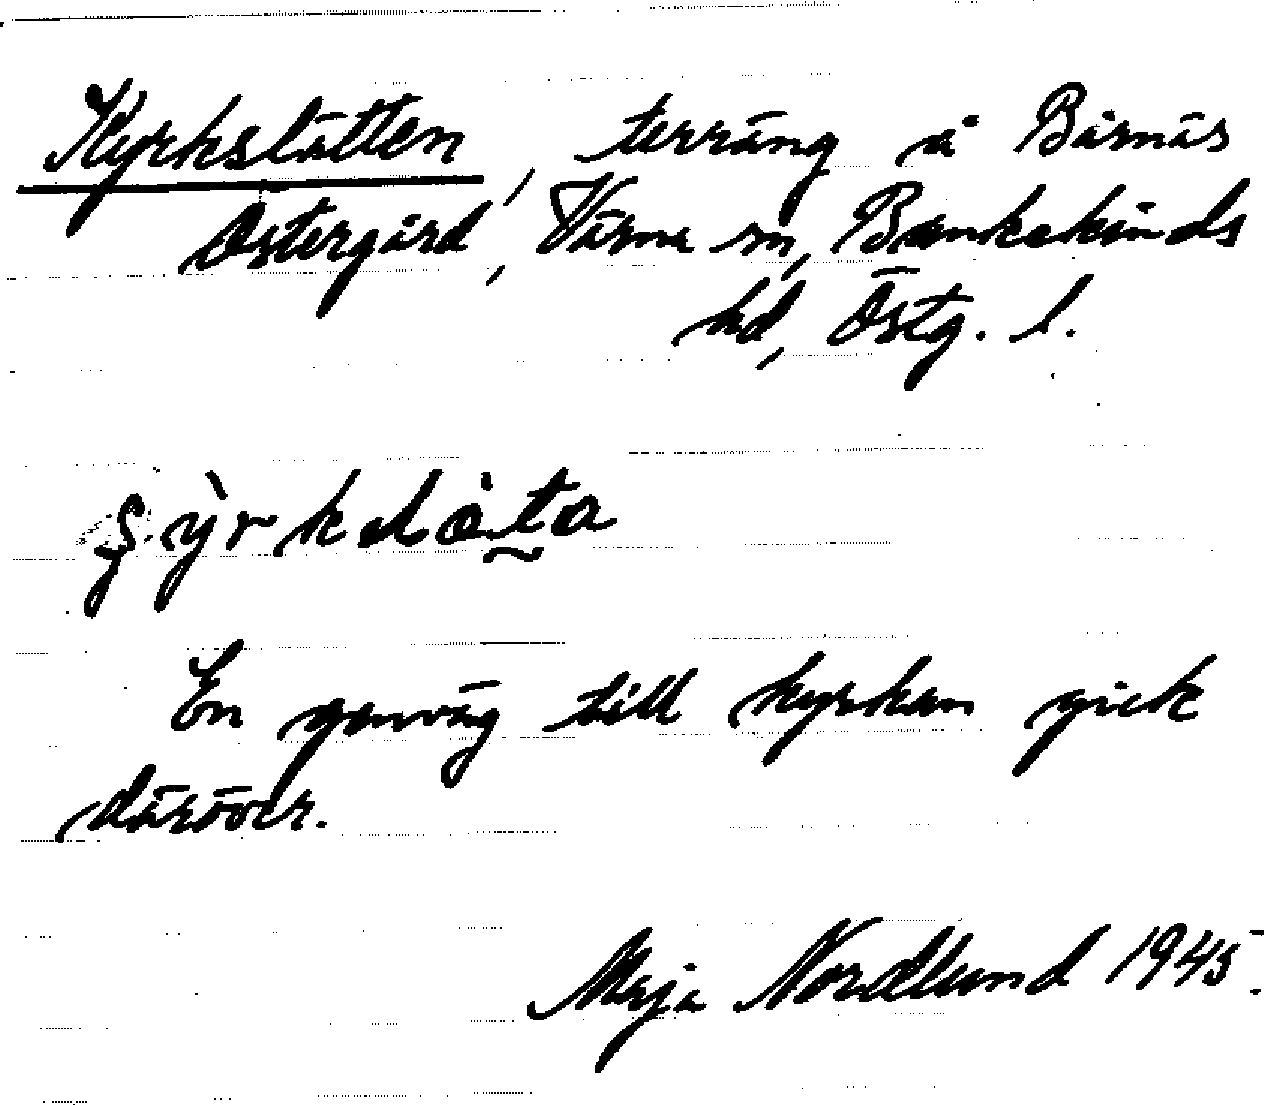 Kyrkslätten, terräng å Bårnäs
Östergård, Värna sn, Bankekinds
hd, Östg. l.
En genväg till kyrkan gick
däröver.
Maja Nordlund 1945.